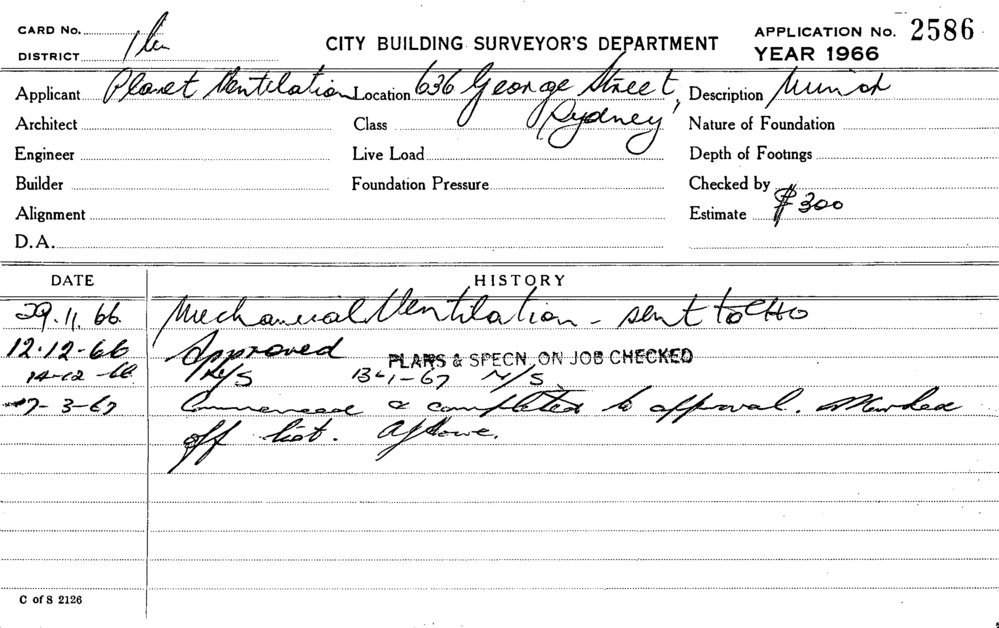 CARD No.
DISTRICT
CITY BUILDING SURVEYOR'S DEPARTMENT
APPLICATION No. 2586
YEAR 1966
Applicant Planet Ventilation Location 636 George Street, Description Minor
Architect Class Sydney Nature of Foundation
Engineer Live Load Depth of Footings
Builder Foundation Pressure Checked by
Alignment Estimate $300
D.A.
DATE HISTORY
29.11.66 Mechanical Ventilation - sent to CHO
12.12-66 Approved PLANS & SPECN. ON JOB CHECKED
14-12-66 N/S 13-1-67 N/S
7-3-67 Commenced & completed to approval. Marked
off list.
C of S 2126